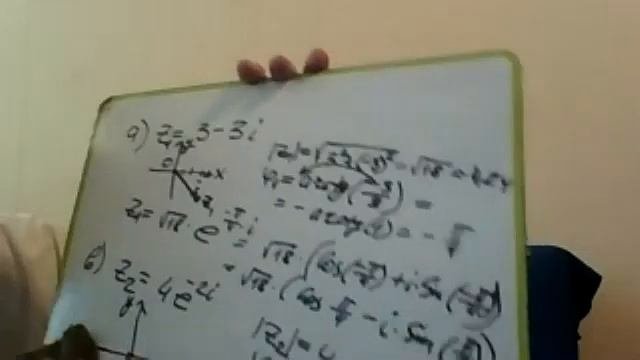 a) z₁ = 3 - 3i
|z₁| = √(3²+(-3)²) = √18 =
φ₁ = arctg(-3/3) =
= - arctg(1) = - π/4
0 x
z₁
z₁ = √18 · e^(-π/4 i) =
= √18 · (cos(-π/4) + i · sin(-π/4))
= √18 · (cos π/4 - i · sin(π/4))
б) z₂ = 4e^(-2i)
y
|z₂| =